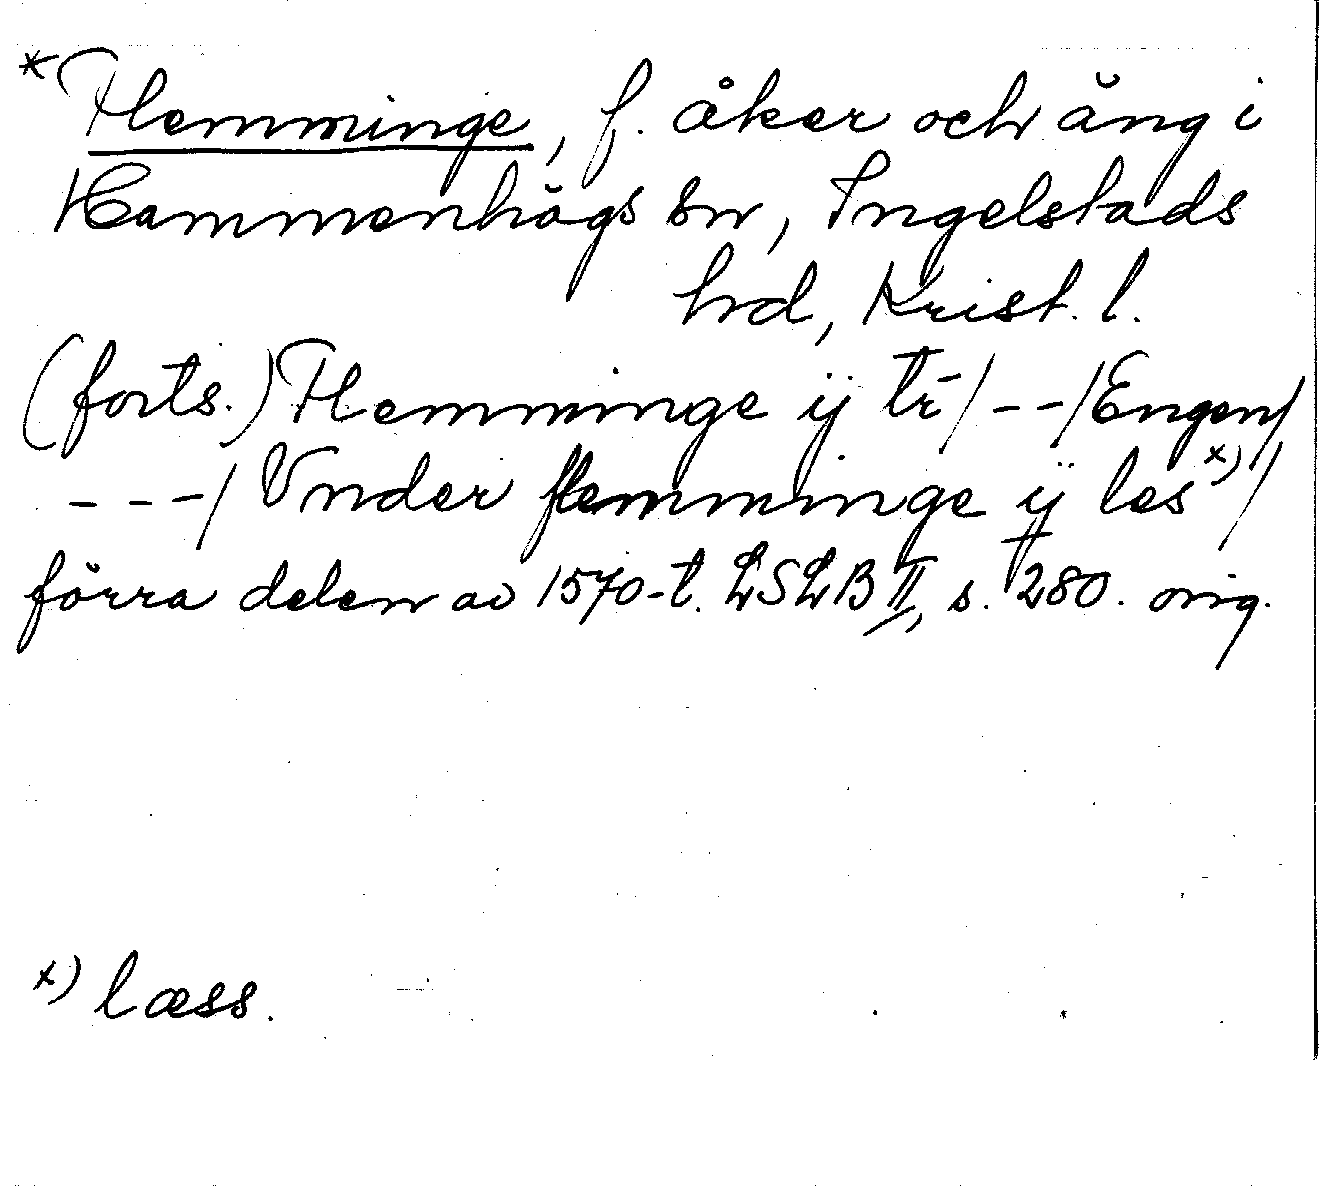 *Flemminge, f. åker och äng i
Hammenhögs sn, Ingelstads
hrd, Krist. l.
(forts.) Flemminge ij tr̄ / -- / Engen /
--- / Vnder flemminge ÿ les x) /
förra delen av 1570-t. LSLB II, s. 280. orig.
x) læss.